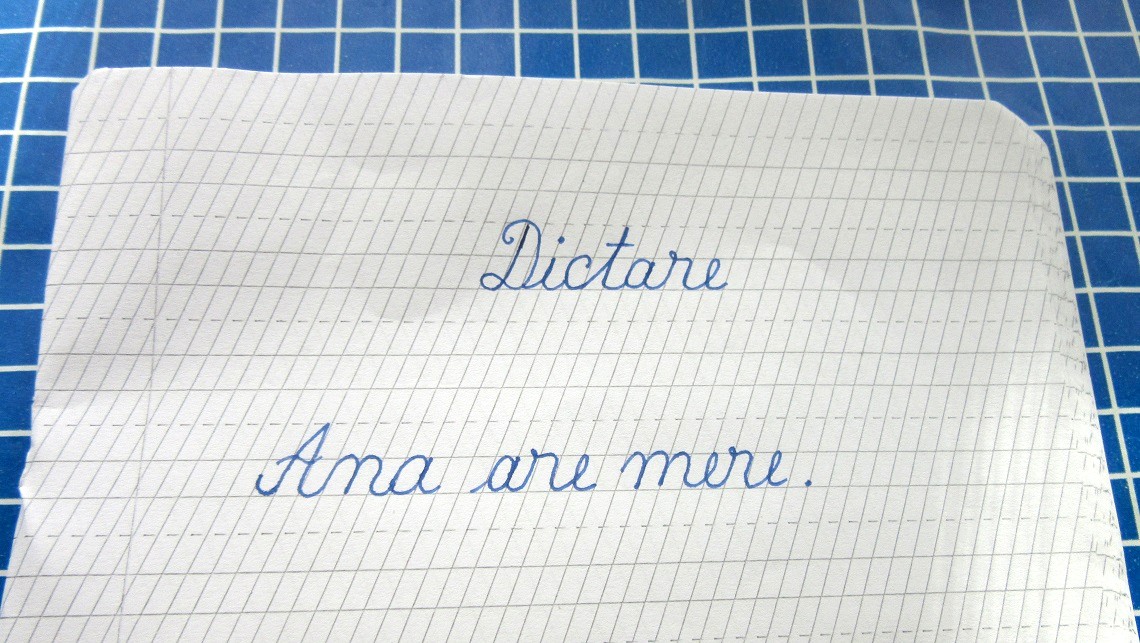 Dictare
Ana are mere.